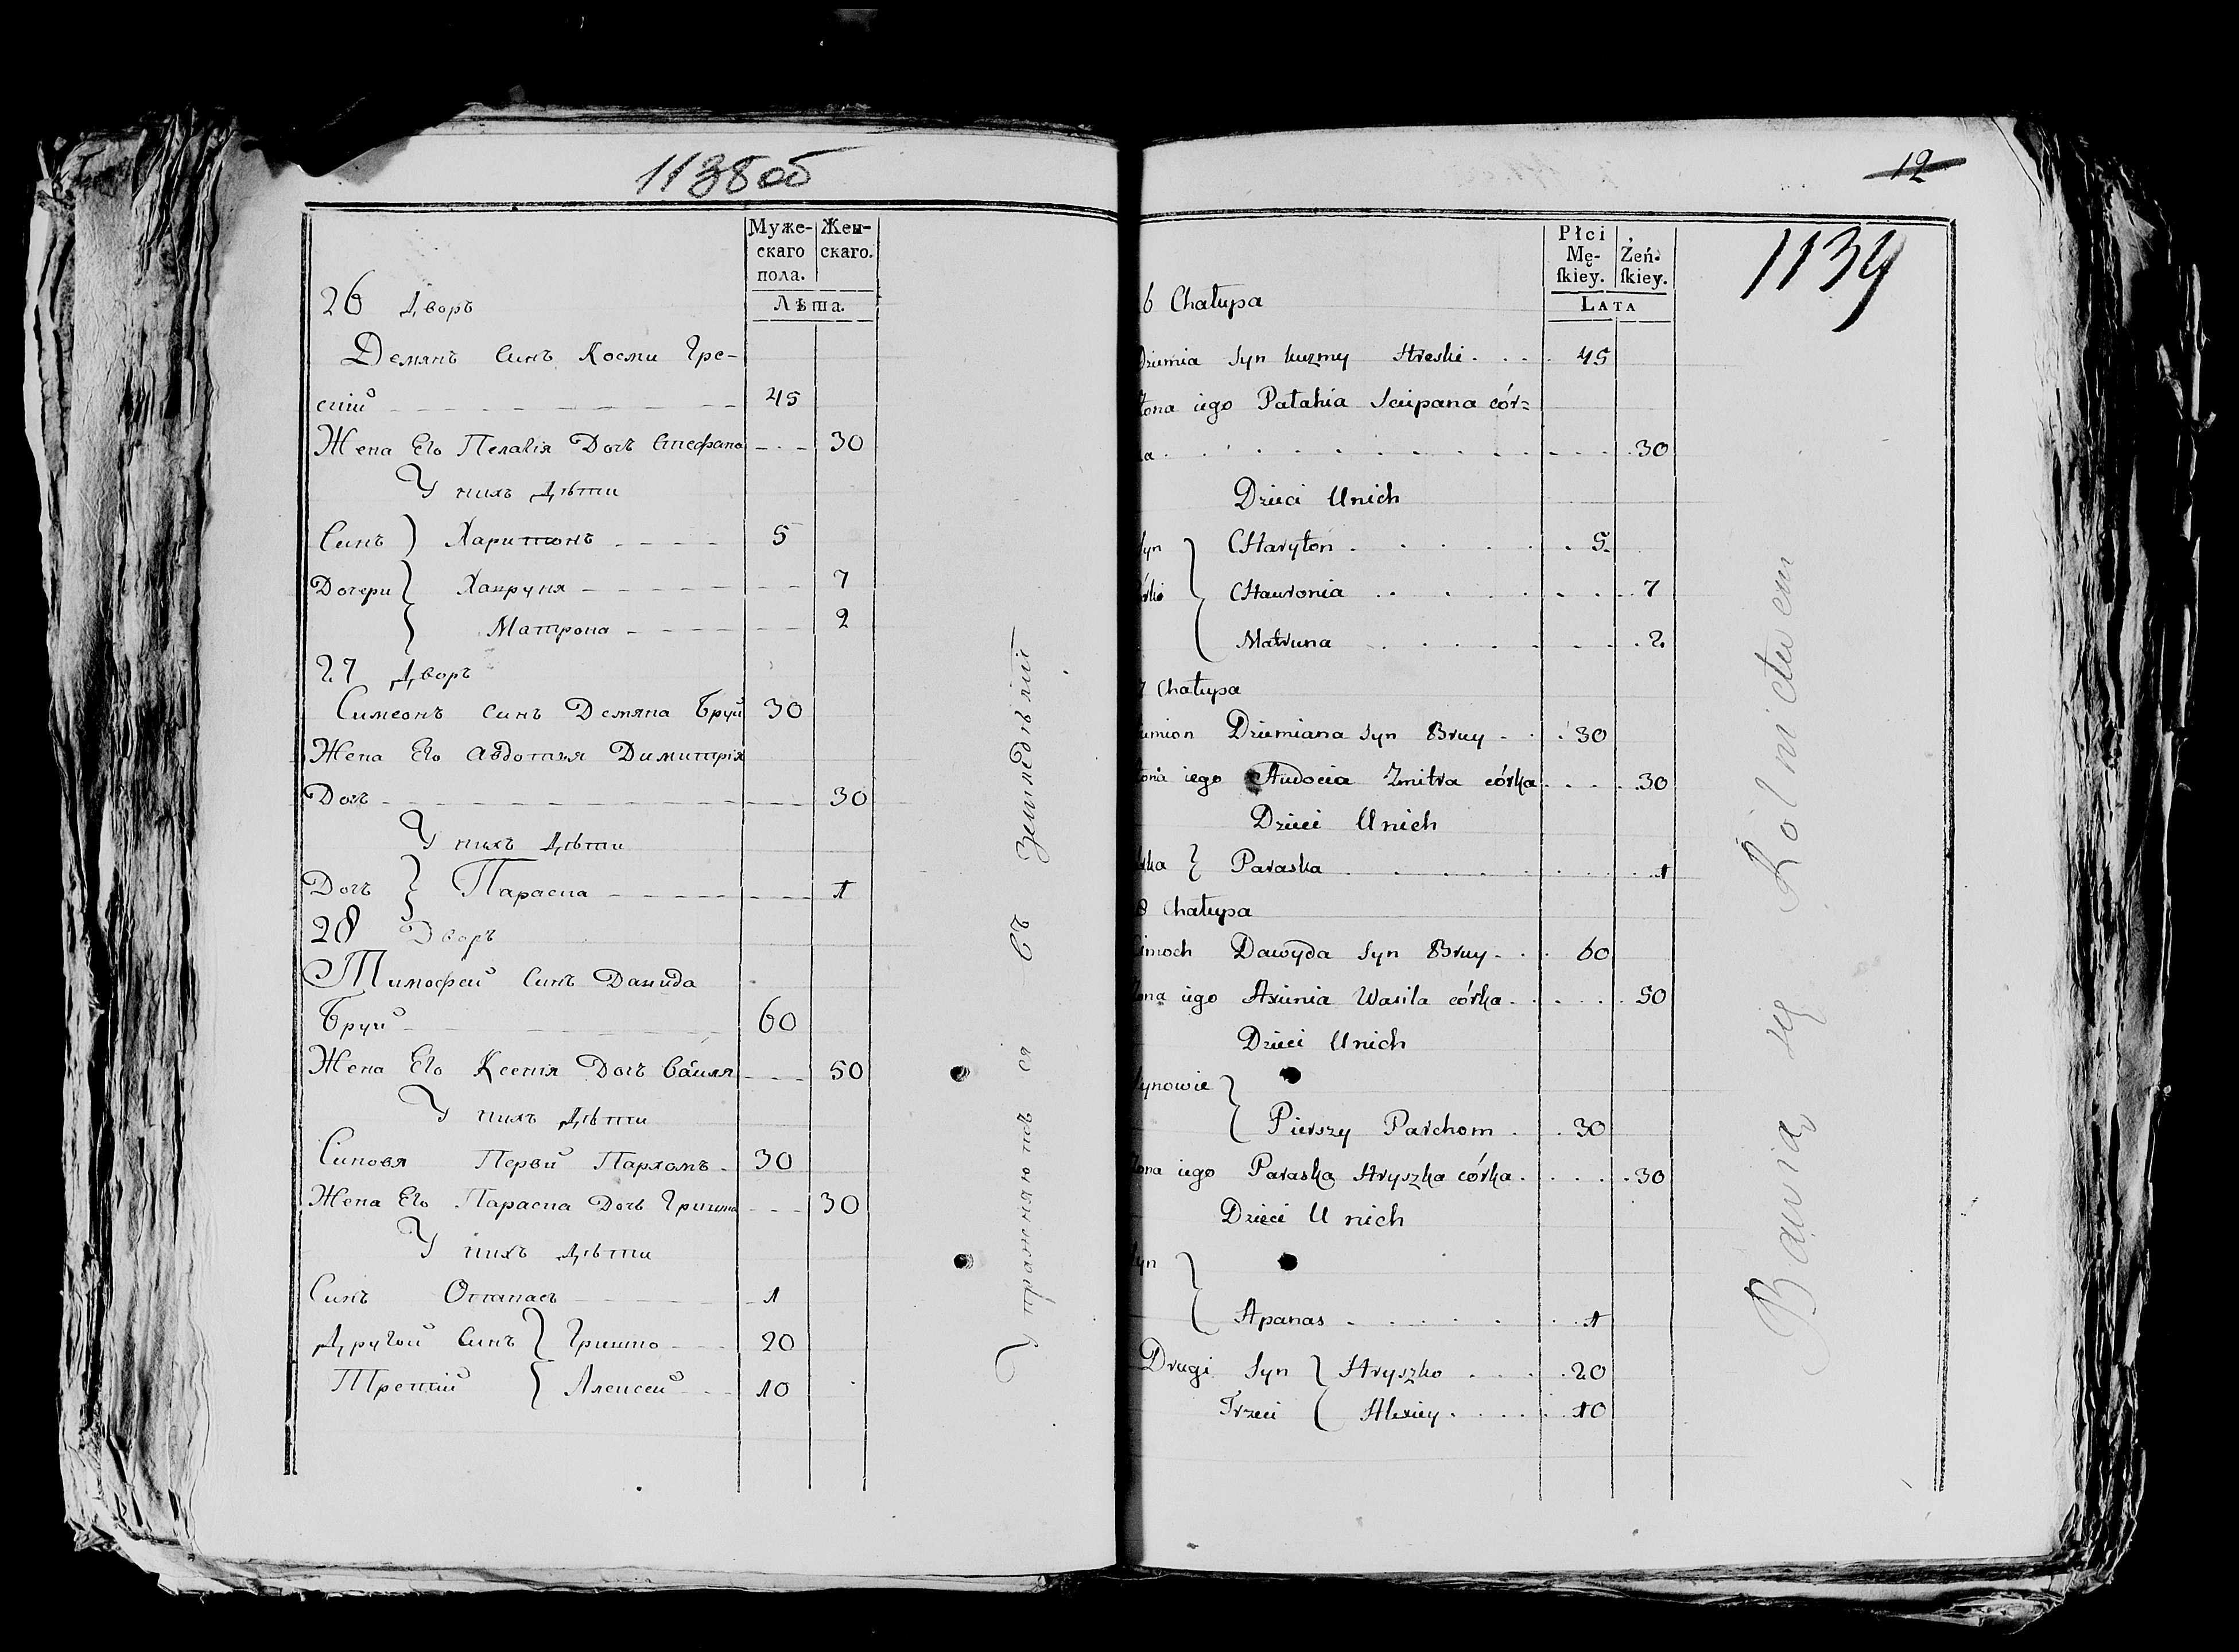 1138 об
Муже-
скаго
пола.
Жен-
скаго.
Лѣта.
26 Дворъ
Демянъ Синъ Косми Гре-
ский 45
Жена Его Пелагія Дочъ Стефана 30
У нихъ Дѣти
Синъ Харитонъ 5
Дочери Хавруня 7
Матрона 2
27 Дворъ
Симеонъ Синъ Демяна Бруй 30
Жена Его Авдотья Димитрія
Дочъ 30
У нихъ Дѣти
Дочъ Параска 1
28 Дворъ
Тимофей Синъ Давида
Бруй 60
Жена Его Ксенія Дочъ 50
У нихъ Дѣти
Синовя Перви Пархомъ 30
Жена Его Параска Дочъ Гришка 30
У нихъ Дѣти
Синъ Опанасъ 1
Другой Синъ Гришко 20
Третій Алексей 10
Упражняются Съ
12
1139
Płci
Mę-
ſkiey.
Żeń-
ſkiey.
LATA
6 Chałupa
Dziemia Syn kuzmy Hreski 45
żona iego Patahia Sciepana cór=
ka 30
Dzieci Unich
Syn CHaryton 5
córki CHawronia 7
Matruna 2
7 Chałupa
Siemion Dziemiana Syn Bruy 30
żona iego Audocia Zmitra córka 30
Dzieci Unich
córka Paraska 1
8 Chałupa
Cimoch Dawyda Syn Bruy 60
żona iego Axinia Wasila córka 50
Dzieci Unich
Synowie
Pierszy Parchom 30
żona iego Paraska Hryszka córka 30
Dzieci Unich
Syn
Apanas 1
Drugi Syn Hryszko 20
Trzeci Alexiey 10
Bawią się Rolnictwem